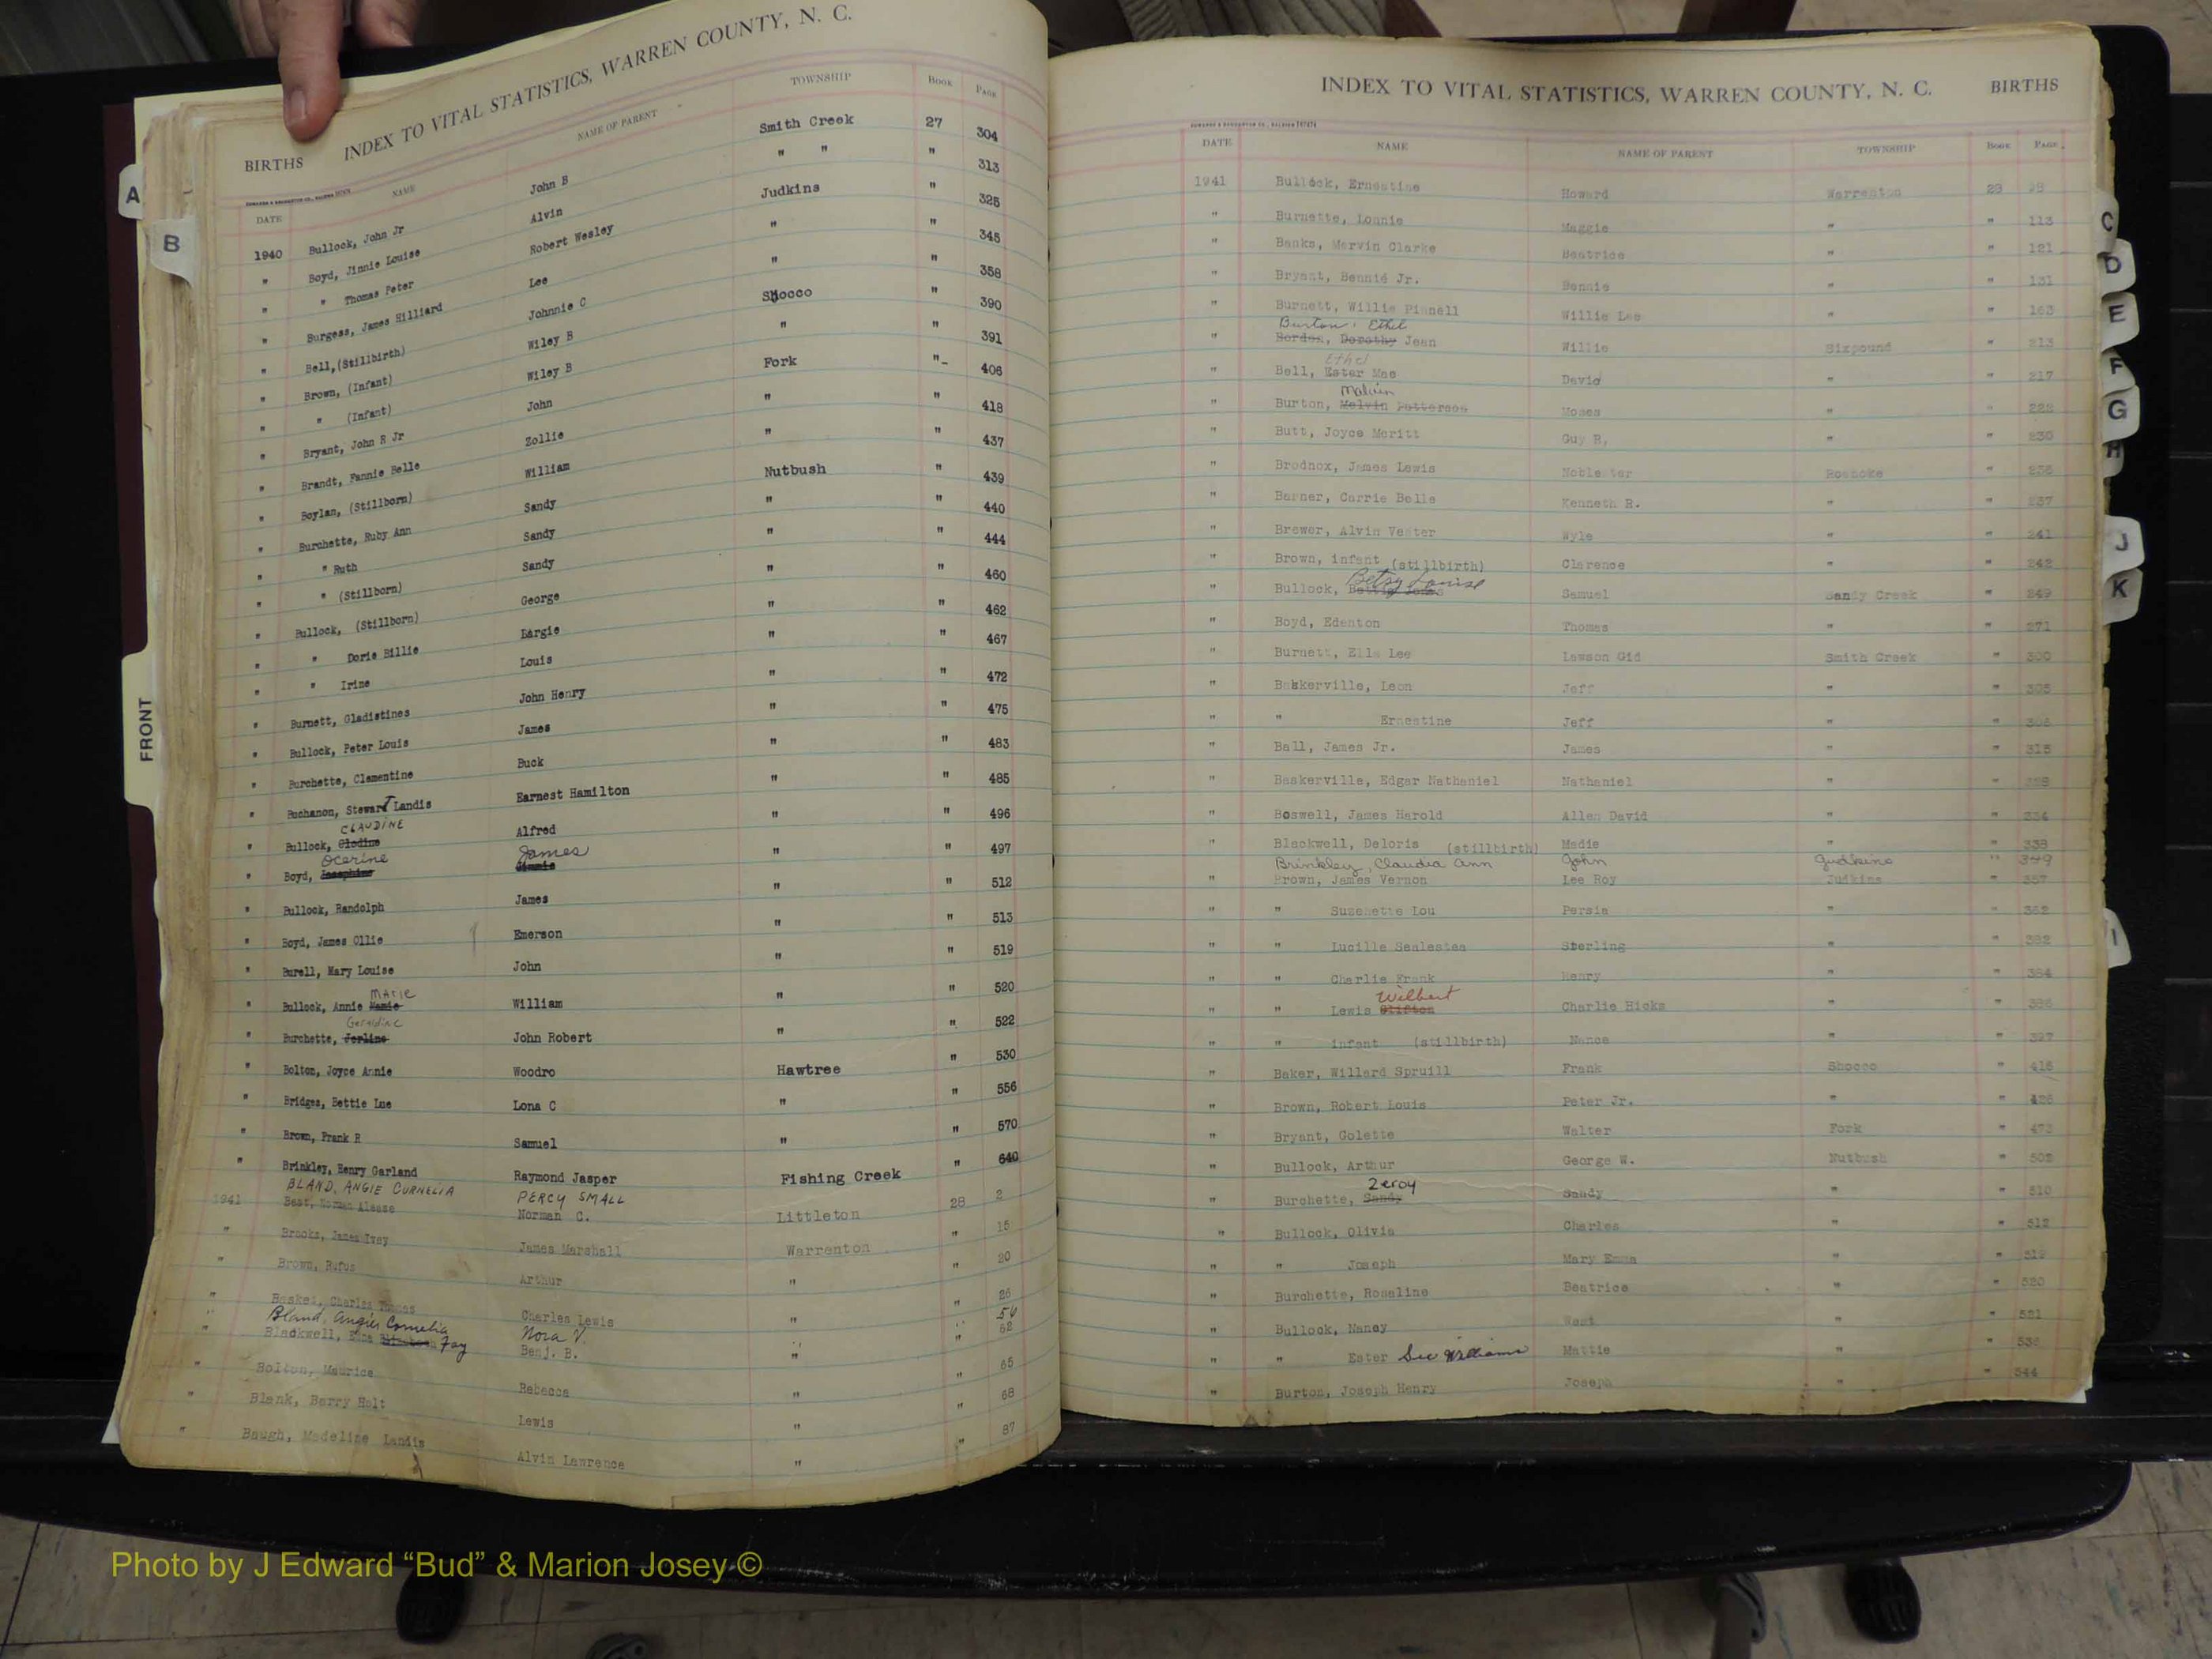 BIRTHS INDEX TO VITAL STATISTICS, WARREN COUNTY, N. C.
DATE NAME NAME OF PARENT TOWNSHIP BOOK PAGE
1940 Bullock, John Jr John B Smith Creek 27 304
" Boyd, Jinnie Louise Alvin " " " 313
" " Thomas Peter Robert Wesley Judkins " 325
" Burgess, James Hilliard Lee " " 345
" Bell, (Stillbirth) Johnnie C " " 358
" Brown, (Infant) Wiley B Shocco " 390
" " (Infant) Wiley B " " 391
" Bryant, John R Jr John Fork " 406
" Brandt, Fannie Belle Zollie " " 418
" Boylan, (Stillborn) William " " 437
" Burchette, Ruby Ann Sandy Nutbush " 439
" " Ruth Sandy " " 440
" " (Stillborn) Sandy " " 444
" Bullock, (Stillborn) George " " 460
" " Doris Billie Bargie " " 462
" " Irine Louis " " 467
" Burnett, Gladistines John Henry " " 472
" Bullock, Peter Louis James " " 475
" Burchette, Clementine Buck " " 483
" Buchanon, Stewart Landis Earnest Hamilton " " 485
CLAUDINE
" Bullock, Clodine Alfred " " 496
Ocerine James
" Boyd, Josephine Jimmie " " 497
" Bullock, Randolph James " " 512
" Boyd, James Ollie Emerson " " 513
" Burell, Mary Louise John " " 519
MARIE
" Bullock, Annie Mamie William " " 520
Geraldine
" Burchette, Jerline John Robert " " 522
" Bolton, Joyce Annie Woodro Hawtree " 530
" Bridges, Bettie Lue Lona C " " 556
" Brown, Frank R Samuel " " 570
" Brinkley, Henry Garland Raymond Jasper Fishing Creek " 640
BLAND, ANGIE CURNELIA PERCY SMALL
1941 Best, Norman Norman C. Littleton 28 2
" Brooks, James Ivey James Marshall Warrenton " 15
" Brown, Rufus Arthur " " 20
" Basket, Charles Thomas Charles Lewis " " 26
" Bland, Angier Cornelia Nora V. " " 54
" Blackwell, Edna Fay Benj. B. " " 62
" Bolton, Maurice Rebecca " " 65
" Blank, Barry Holt Lewis " " 68
" Baugh, Madeline Landis Alvin Lawrence " " 87
INDEX TO VITAL STATISTICS, WARREN COUNTY, N. C. BIRTHS
DATE NAME NAME OF PARENT TOWNSHIP BOOK PAGE
1941 Bullock, Ernestine Howard Warrenton 28 98
" Burnette, Lonnie Maggie " " 113
" Banks, Marvin Clarke Beatrice " " 121
" Bryant, Bennie Jr. Bennie " " 131
" Burnett, Willie Pinnell Willie Lee " " 163
Burton, Ethel
" Borden, Dorothy Jean Willie Sixpound " 213
Ethel
" Bell, Ester Mae David " " 217
Malvin
" Burton, Melvin Patterson Moses " " 222
" Butt, Joyce Meritt Guy B. " " 230
" Brodnox, James Lewis Roanoke " 236
" Barner, Carrie Belle Kenneth R. " " 237
" Brewer, Alvin Vester Wyle " " 241
" Brown, infant (stillbirth) Clarence " " 242
Betsy Louise
" Bullock, Samuel Sandy Creek " 249
" Boyd, Edenton Thomas " " 271
" Burnett, Ella Lee Lawson Gid Smith Creek " 300
" Baskerville, Leon Jeff " " 305
" " Ernestine Jeff " " 306
" Ball, James Jr. James " " 315
" Baskerville, Edgar Nathaniel Nathaniel " "
" Boswell, James Harold Allen David " " 334
" Blackwell, Deloris (stillbirth) Madie " " 338
Brinkley, Claudia Ann John Judkins " 349
" Brown, James Vernon Lee Roy Judkins " 357
" " Suzenette Lou Persia " " 362
" " Lucille Sealestea Sterling " " 382
" " Charlie Frank Henry " " 384
Wilbert
" " Lewis Clifton Charlie Hicks " " 386
" " infant (stillbirth) Nance " " 397
" Baker, Willard Spruill Frank Shocco " 416
" Brown, Robert Louis Peter Jr. " " 426
" Bryant, Golette Walter Fork " 473
" Bullock, Arthur George W. Nutbush " 502
Zeroy
" Burchette, Sandy Sandy " " 510
" Bullock, Olivia Charles " " 512
" " Joseph Mary Emma " " 519
" Burchette, Rosaline Beatrice " " 520
" Bullock, Nancy West " " 521
" " Ester See Williams Mattie " " 536
" Burton, Joseph Henry Joseph " " 544
A
B
FRONT
C
D
E
F
G
H
J
K
I
Photo by J Edward “Bud” & Marion Josey ©